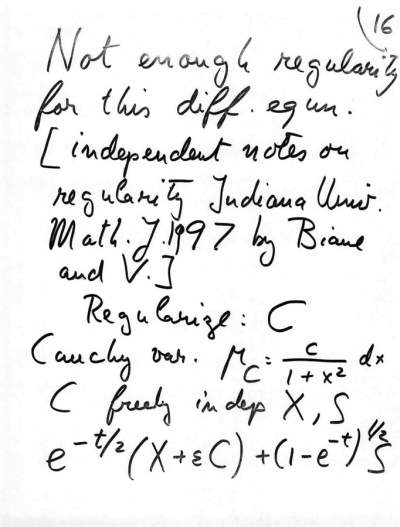 16
Not enough regularity
for this diff. equn.
[independent notes on
regularity Indiana Univ.
Math. J. 1997 by Biane
and V.]
Regularize: C
Cauchy var. μ_C = c/(1+x²) dx
C freely indep X, S
e^{-t/2}(X+εC)+(1-e^{-t})^{1/2}S